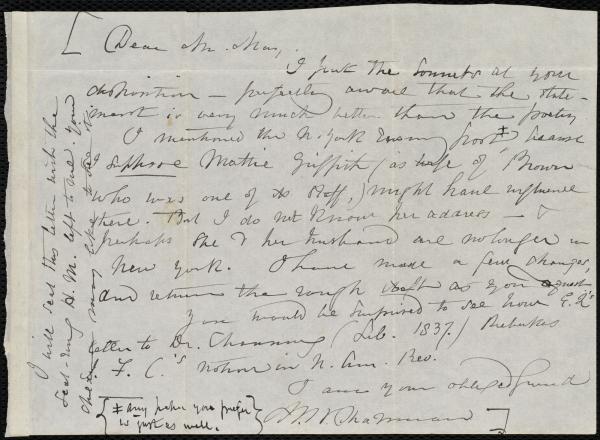 [ Dear Mr. May,
I put the sonnets at your
disposition — perfectly aware that the state-
ment is very much better than the poetry
I mentioned the N. York Evening Post ‡, because
I suppose Mattie Griffith (as wife of Brown
who was one of its staff,) might have influence
there. But I do not know her address — &
perhaps she & her husband are no longer in
New York. I have made a few changes,
and return the rough draft as you request
You would be surprised to see how E. Q's
letter to Dr. Channing (Lib. 1837.) Rebukes
F. C.'s notion in N. Am. Rev.
I am your obliged friend
M. W. Chapman ]
{ ‡ any paper you prefer
is just as well. }
I will seal this letter with the
seal-ring H. M. left to me. You
may like to see it.